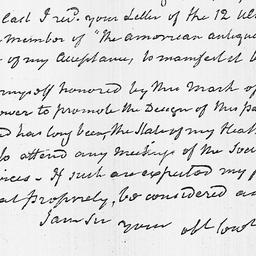 last I recd. your Letter of the 12 Ult
member of "The american antiqu
of my Acceptance, to manifest it b
myself honored by this Mark of
power to promote the Design of this pa
ed has long been the State of my Heal
to attend any meetings of the Soci
vices - If such are expected my p
at Propriety, be considered as
I am Sir your obt